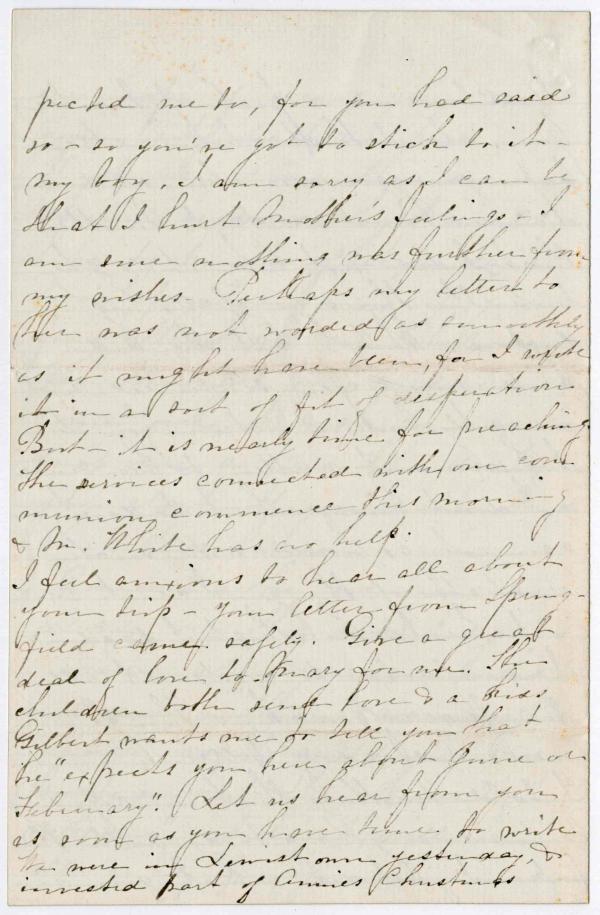 pected me to, for you had said
so - so you've got to stick to it -
my boy. I am sorry as I can be
that I hurt Mother's feelings - I
am sure nothing was further from
my wishes - Perhaps my letter to
her was not worded as smoothly
as it might have been, for I wrote
it in a sort of fit of desperation
But - it is nearly time for preaching.
The services connected with our com
munion commence this morning
& Mr. White has no help.
I feel anxious to hear all about
your trip - your letter from Spring-
field came safely. Give a great
deal of love to Mary for me. The
children both send love & a kiss
Gilbert wants me to tell you that
he "expects you here about June or
February". Let us hear from you
as soon as you have time to write
We were in Lewistown yesterday, &
invested part of Annies Christmas